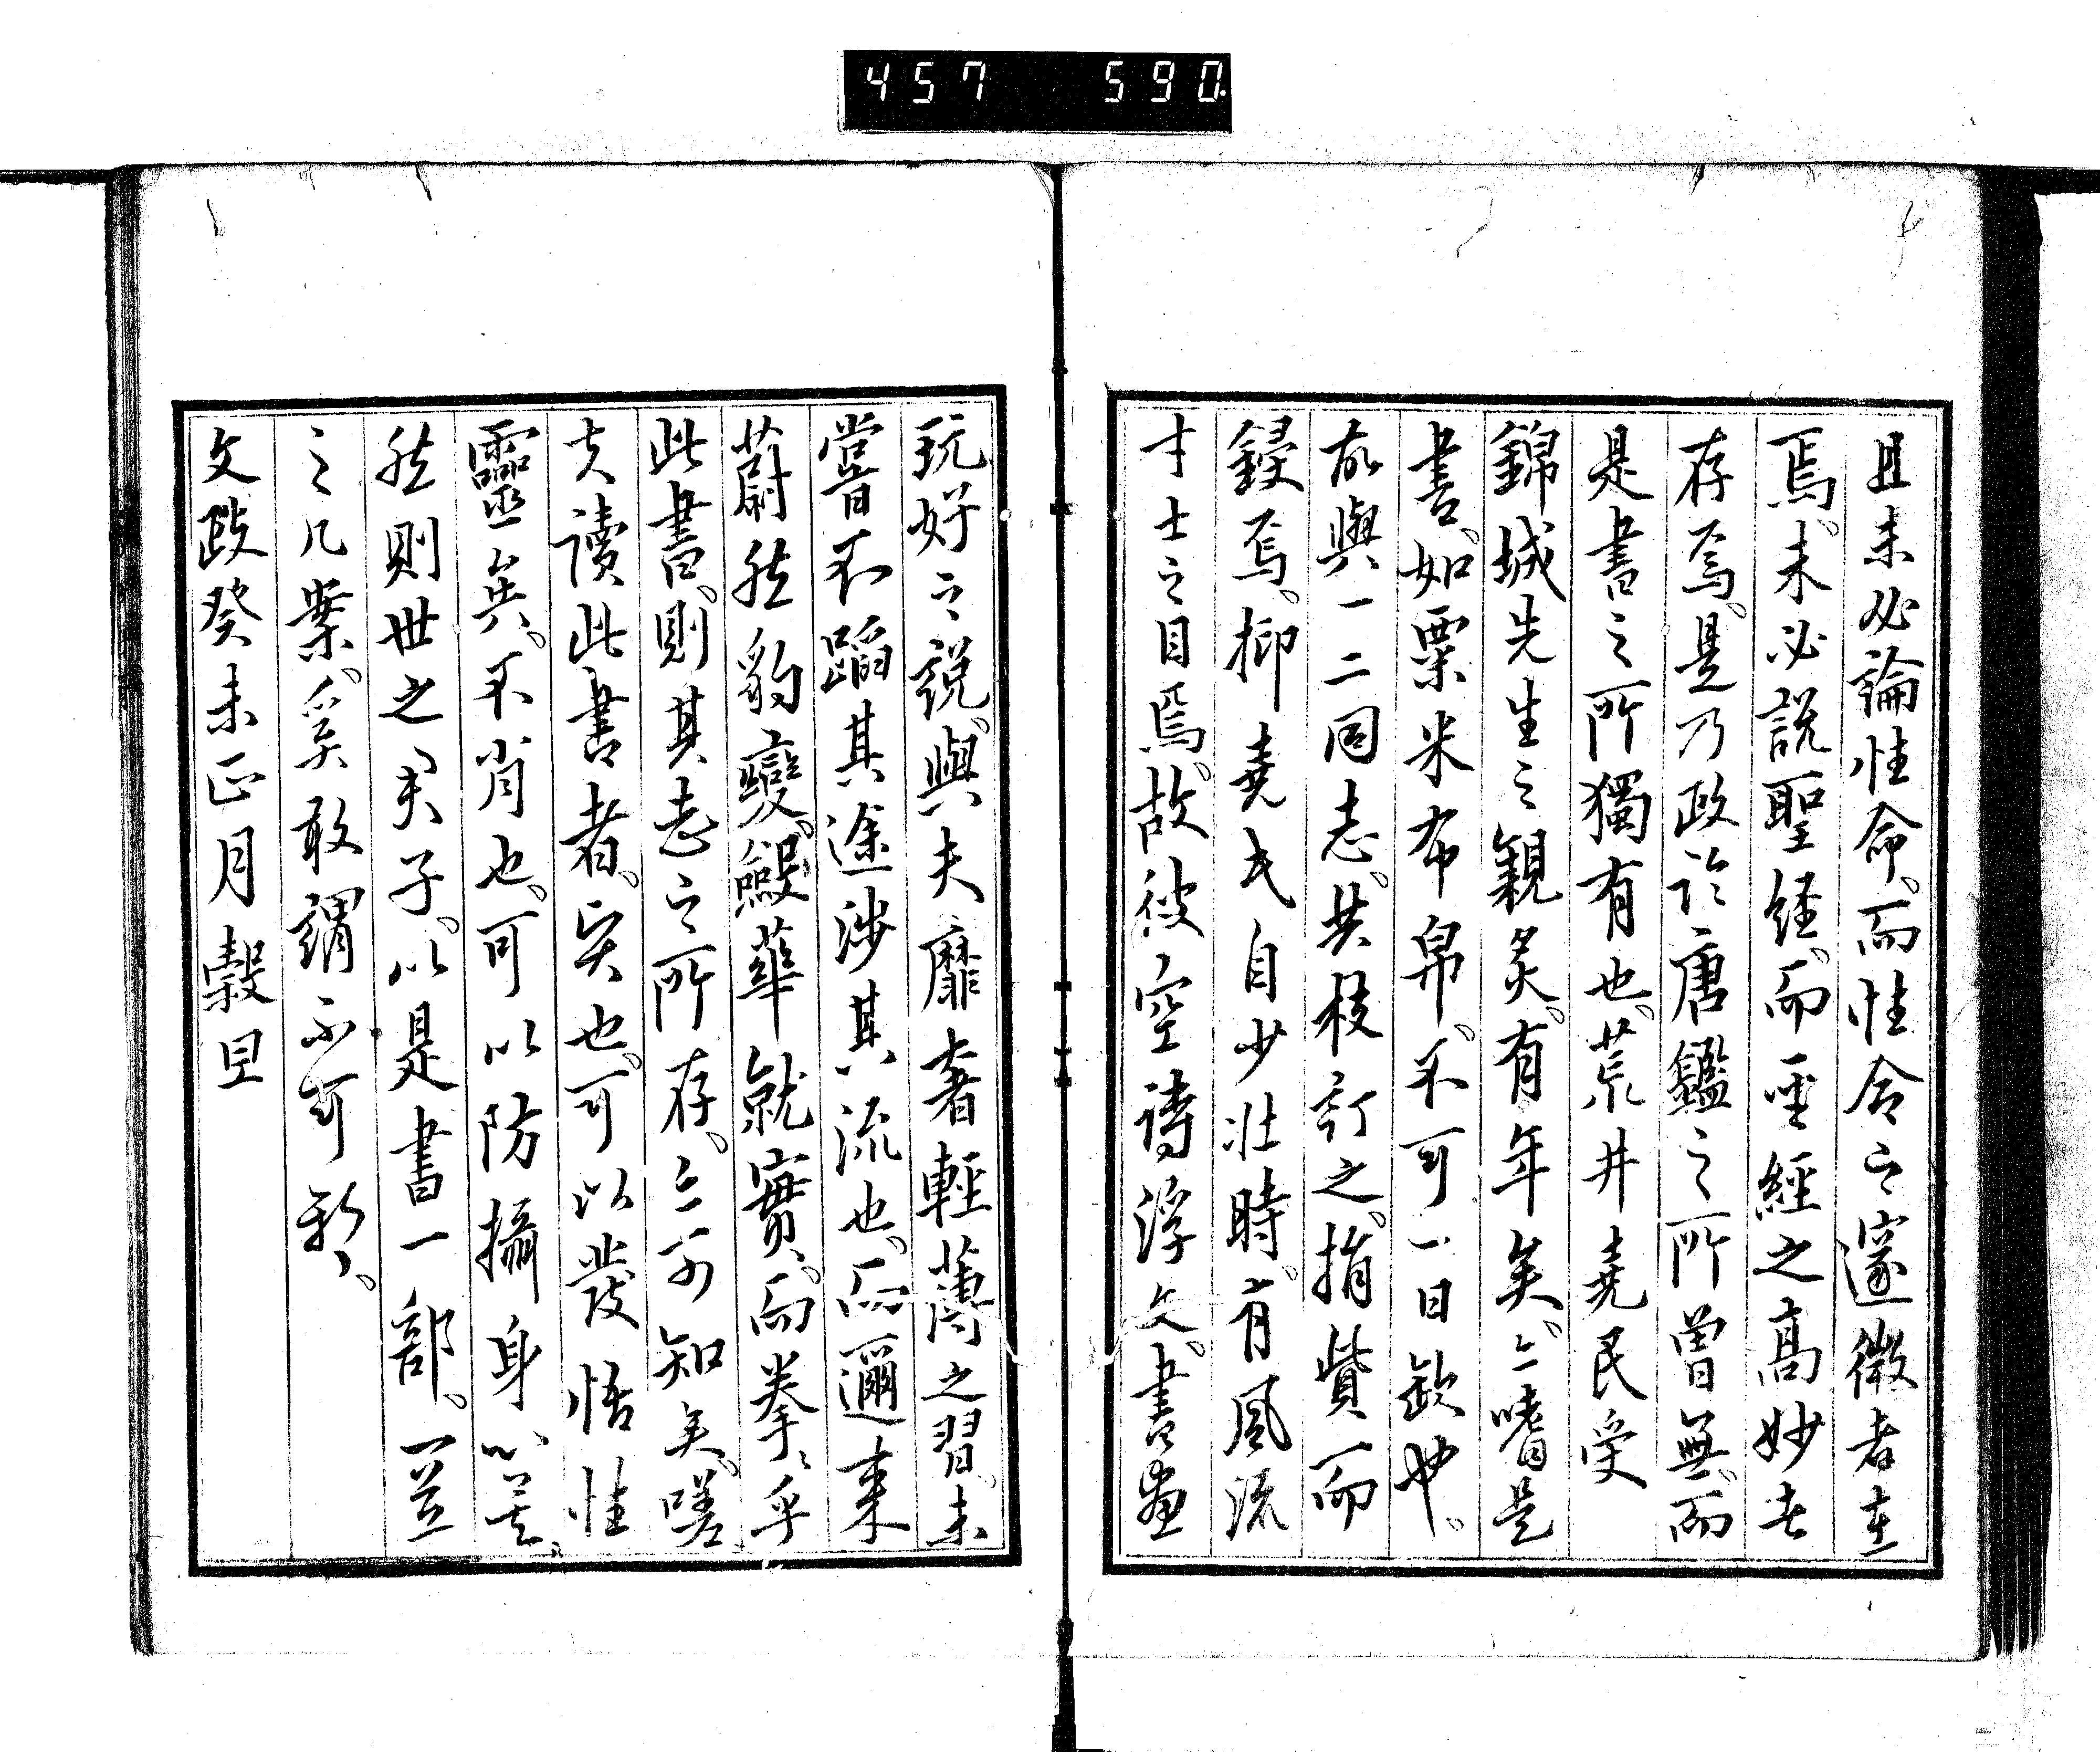 457 590
且未必論性命、而性命之邃微者在
焉、未必説聖経、而聖經之高妙者
存焉、是乃政於唐鑑之所曽無、而
是書之所獨有也、荒井堯民受
錦城先生之親炙、有年矣、亦嗜是
書、如粟米布帛、不可一日欽也、
故與一二同志、共校訂之、捐貲而
鋟焉、抑堯民自少壮時、有風流
才士之目焉、故彼空詩浮文、書画
玩好之説、與夫靡奢輕薄之習、未
嘗不蹈其途渉其流也、而邇来
蔚然豹變、鏝華就實、而拳〻乎
此書、則其志之所存、亦可知矣、嗟
夫読此書者、賢也、可以發悟性
靈矣、不肖也、可以防攝身心矣、
然則世之君子、以是書一部、置
之几案、奚敢謂不可乎、
文政癸未正月穀旦